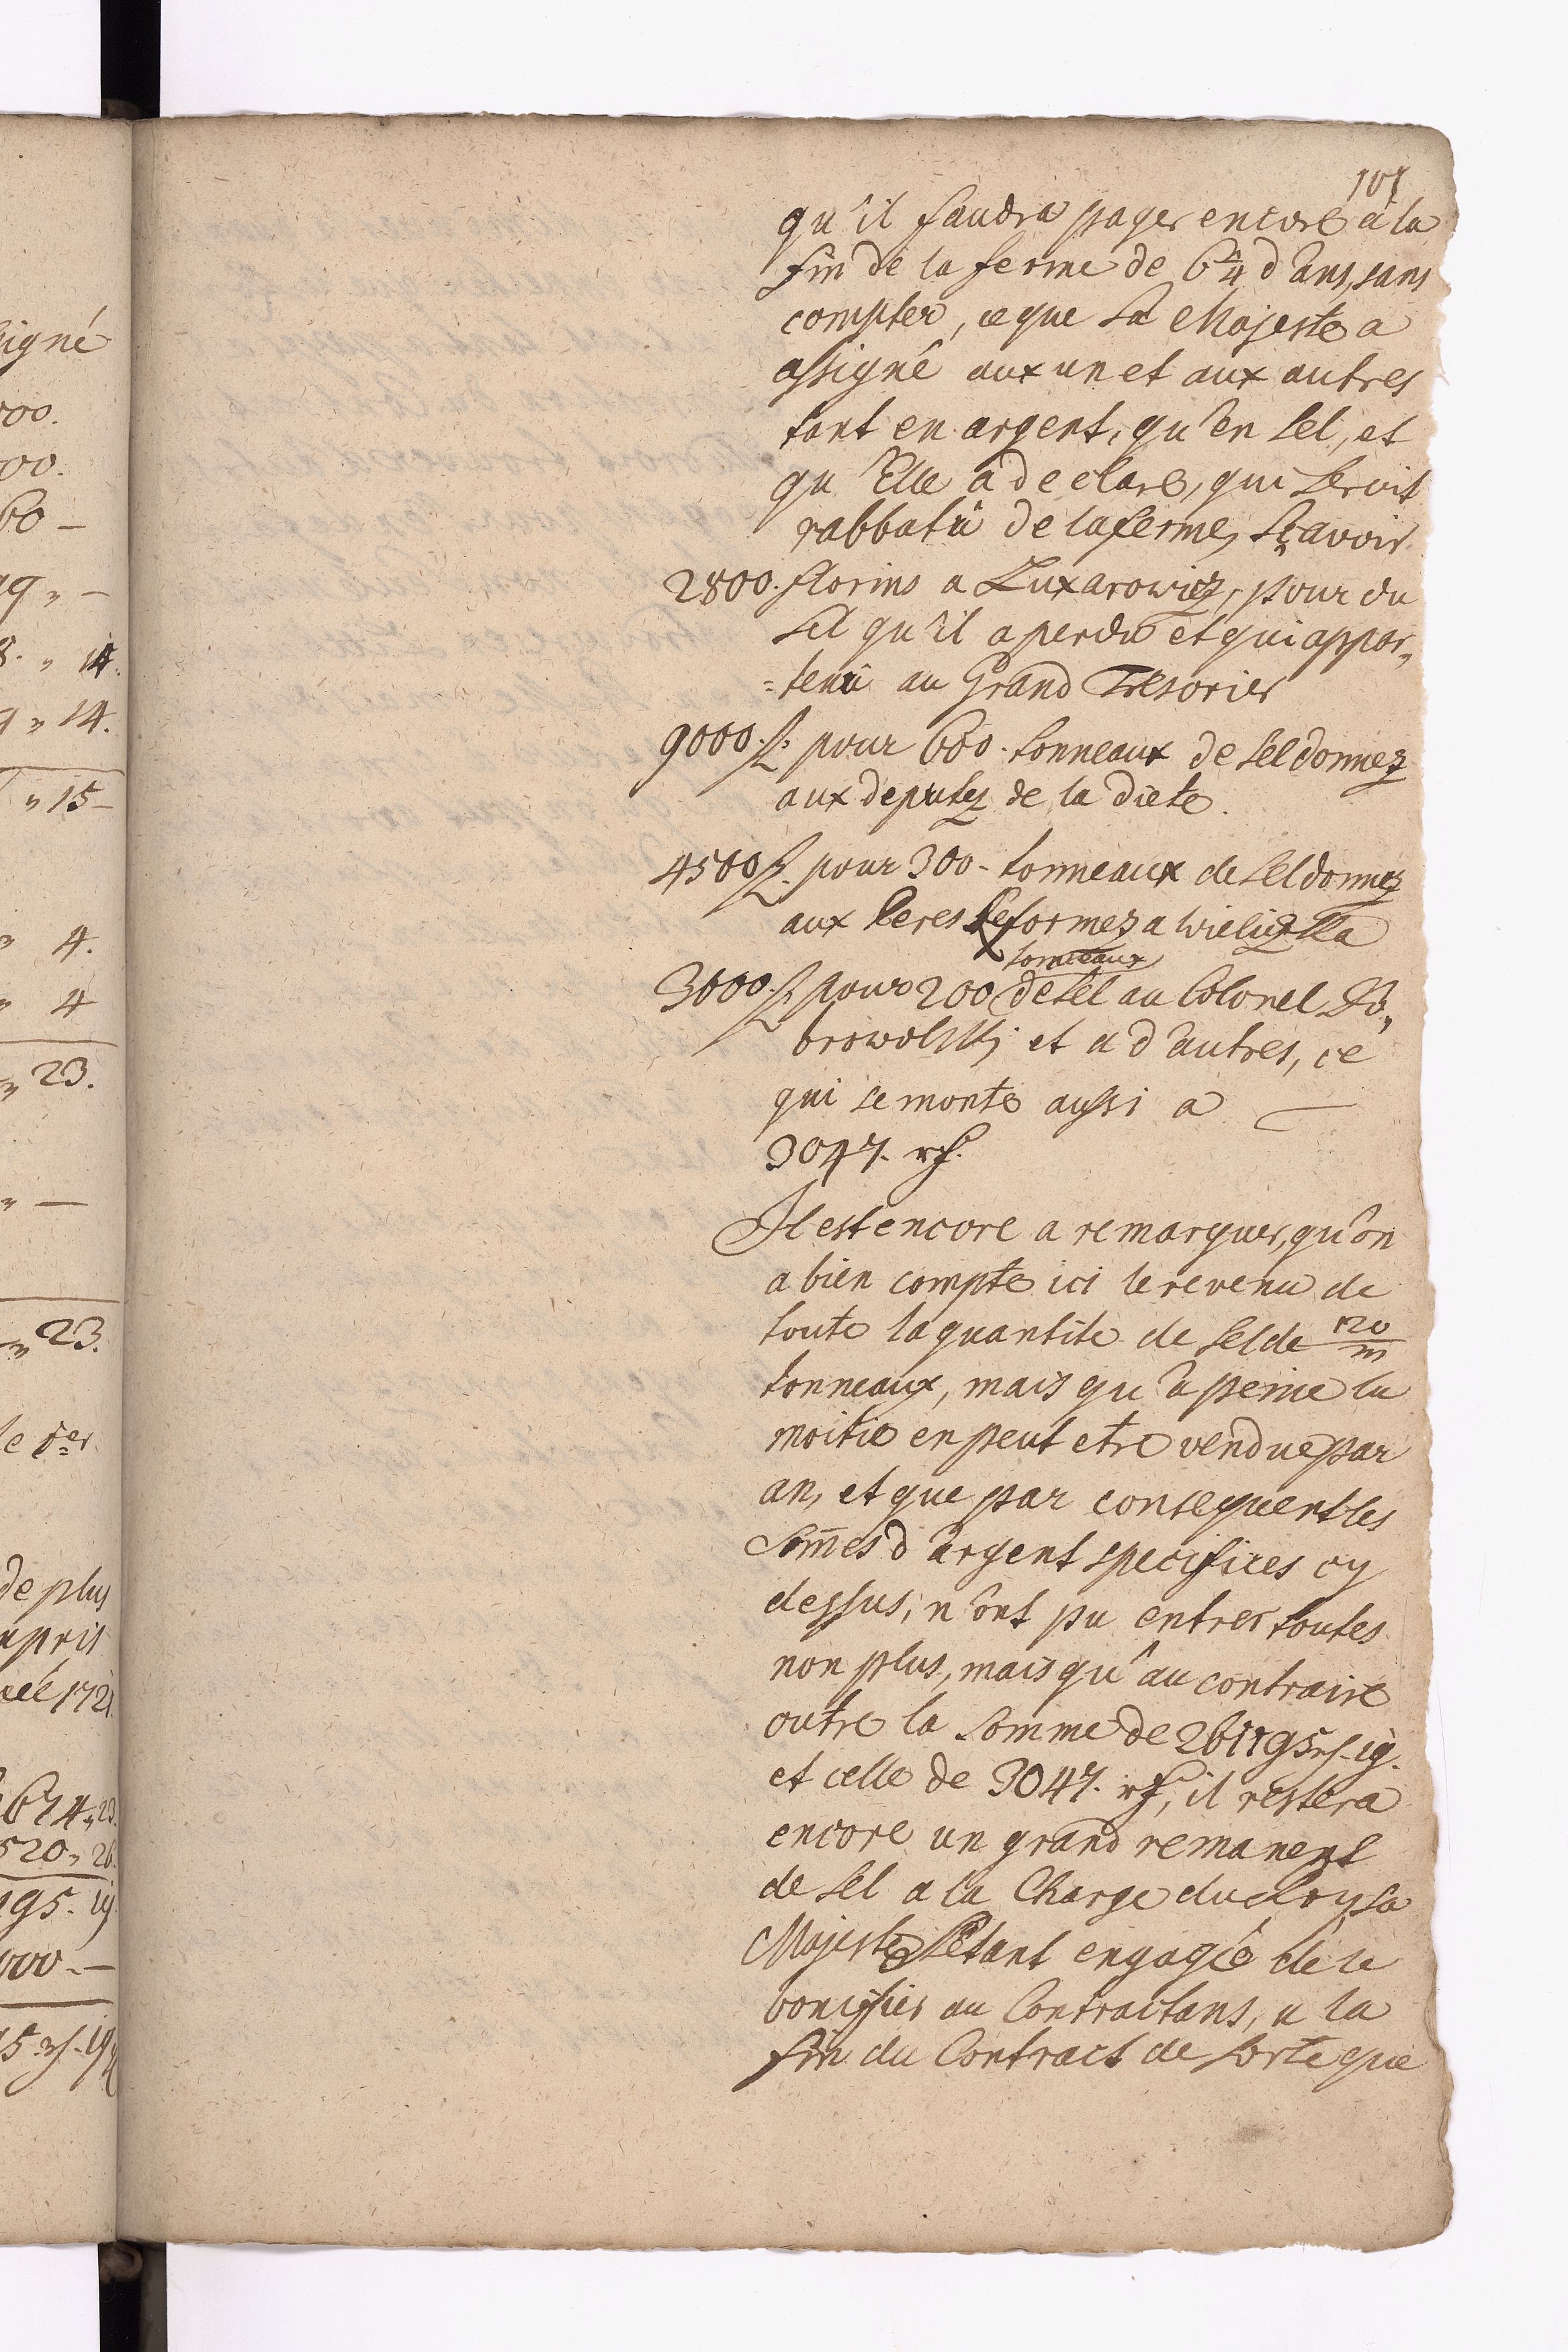 signé
000.
00.
60 –
19 „ –
8. „ 14.
9 „ 14.
„ 15 –
„ 4.
„ 4
„ 23.
„ –
„ 23.
de plus
1721.
674 „ 23.
520 „ 26.
195. 19.
000 „ –
101
qu'il faudra payer encore à la
fin de la ferme de 6 2/4 d'ans, sans
compter, ce que Sa Majeste a
assigné aux un et aux autres
tant en argent, qu'en Sel, et
qu'Elle a declaré, qui Seroit
rabbatû de la ferme, Sçavoir
2800. florins a Luxarowicz, pour du
Sel qu'il a perdu et qui appar„
=tenû au Grand Tresorier
9000. fl. pour 600. tonneaux de Sel donnez
aux deputez de la diete.
4500 fl. pour 300 - tonneaux de Sel donnez
aux Peres Reformez a Wieliczka
tonneaux
3000. fl. pour 200 de Sel au Colonel Do„
browolskj et a d'autres, ce
qui se monte aussi a —
3047. rf.
Il est encore a remarquer, qu'on
a bien compté ici le revenu de
toute la quantite de Sel de 120/m
tonneaux, mais qu'a peine la
moitie en peut etre vendue par
an, et que par consequent les
Som̄es d'argent specifiees cy
dessus, n'ont pu entrer toutes
non plus, mais qu'au contraire
outre la Somme de 261195 rf. 19.
et celle de 3047. rf, il restera
encore un grand remanent
de Sel a la Charge du Roy Sa
Majesté S'etant engagée de le
bonifier au Contractans, a la
fin du Contract de Sorte que